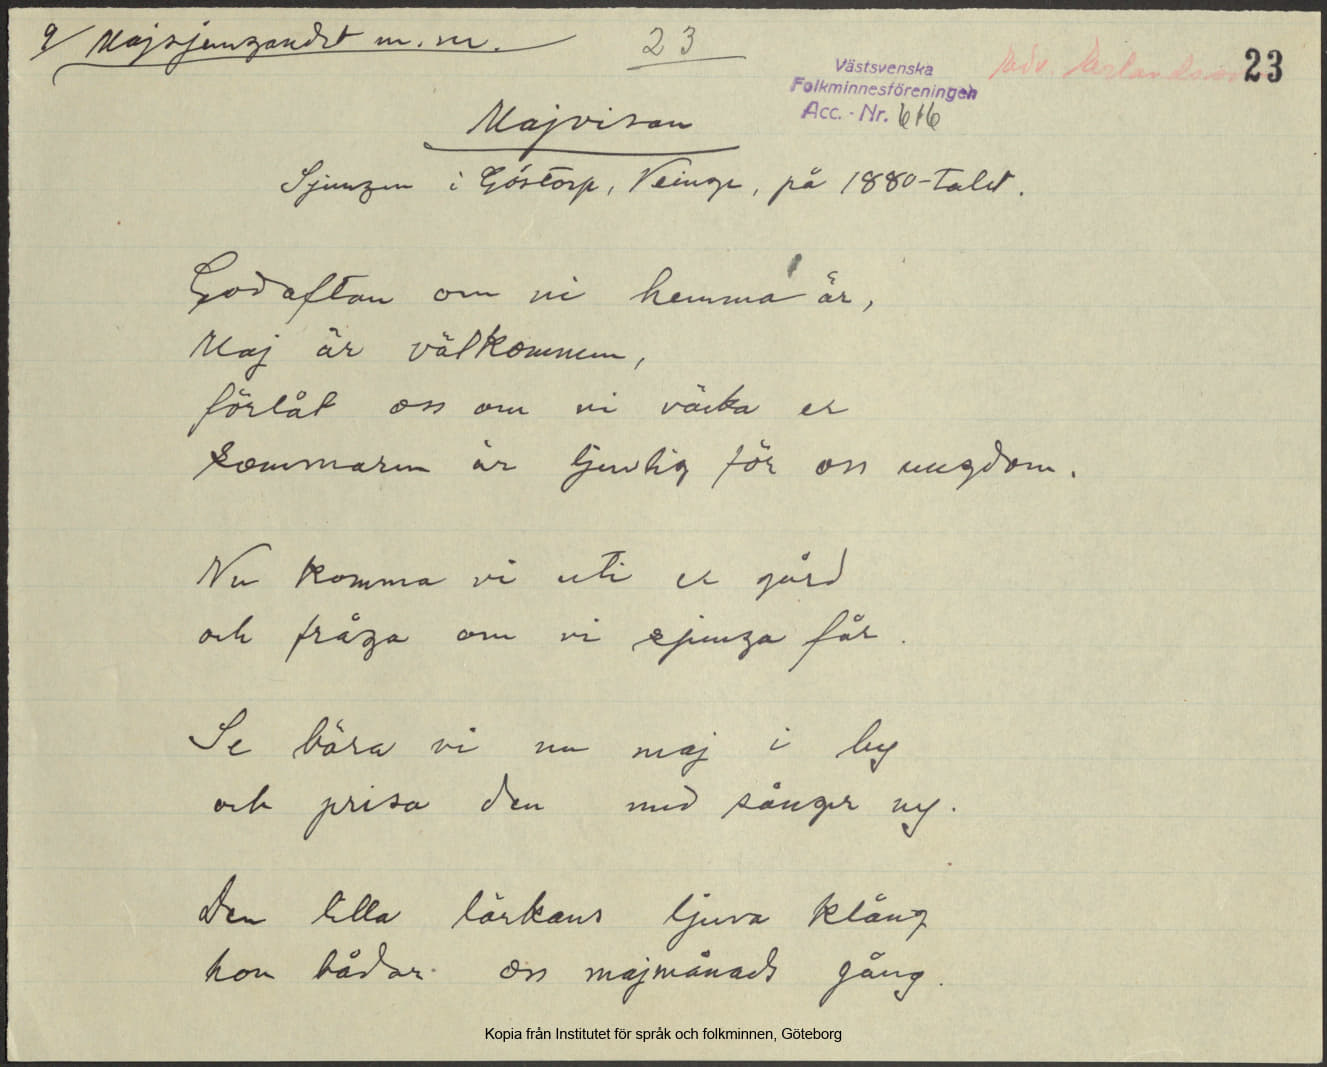 9/ Majsjungandet m.m.
23
23
Västsvenska
Folkminnesföreningen
Acc. - Nr. 616
Majvisan
Sjungen i Göstorp, Veinge, på 1880-talet.
God afton om ni hemma är,
Maj är välkommen,
förlåt oss om vi väcka er
sommaren är ljuvlig för oss ungdom.
Nu komma vi uti er gård
och fråga om vi sjunga får.
Se bära vi nu maj i by
och prisa den med sånger ny.
Den lilla lärkans ljuva klång
hon bådar oss majmånads gång.
Kopia från Institutet för språk och folkminnen, Göteborg